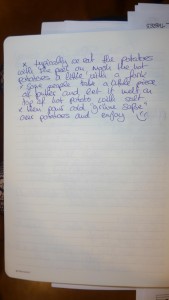 * typically we eat the potatoes
with the peel on. Mash the hot
potatoes a little with a fork
* some people take a little piece
of butter and let it melt on
top of hot potato with salt.
* then pour cold "grüne Soße"
over potatoes and enjoy